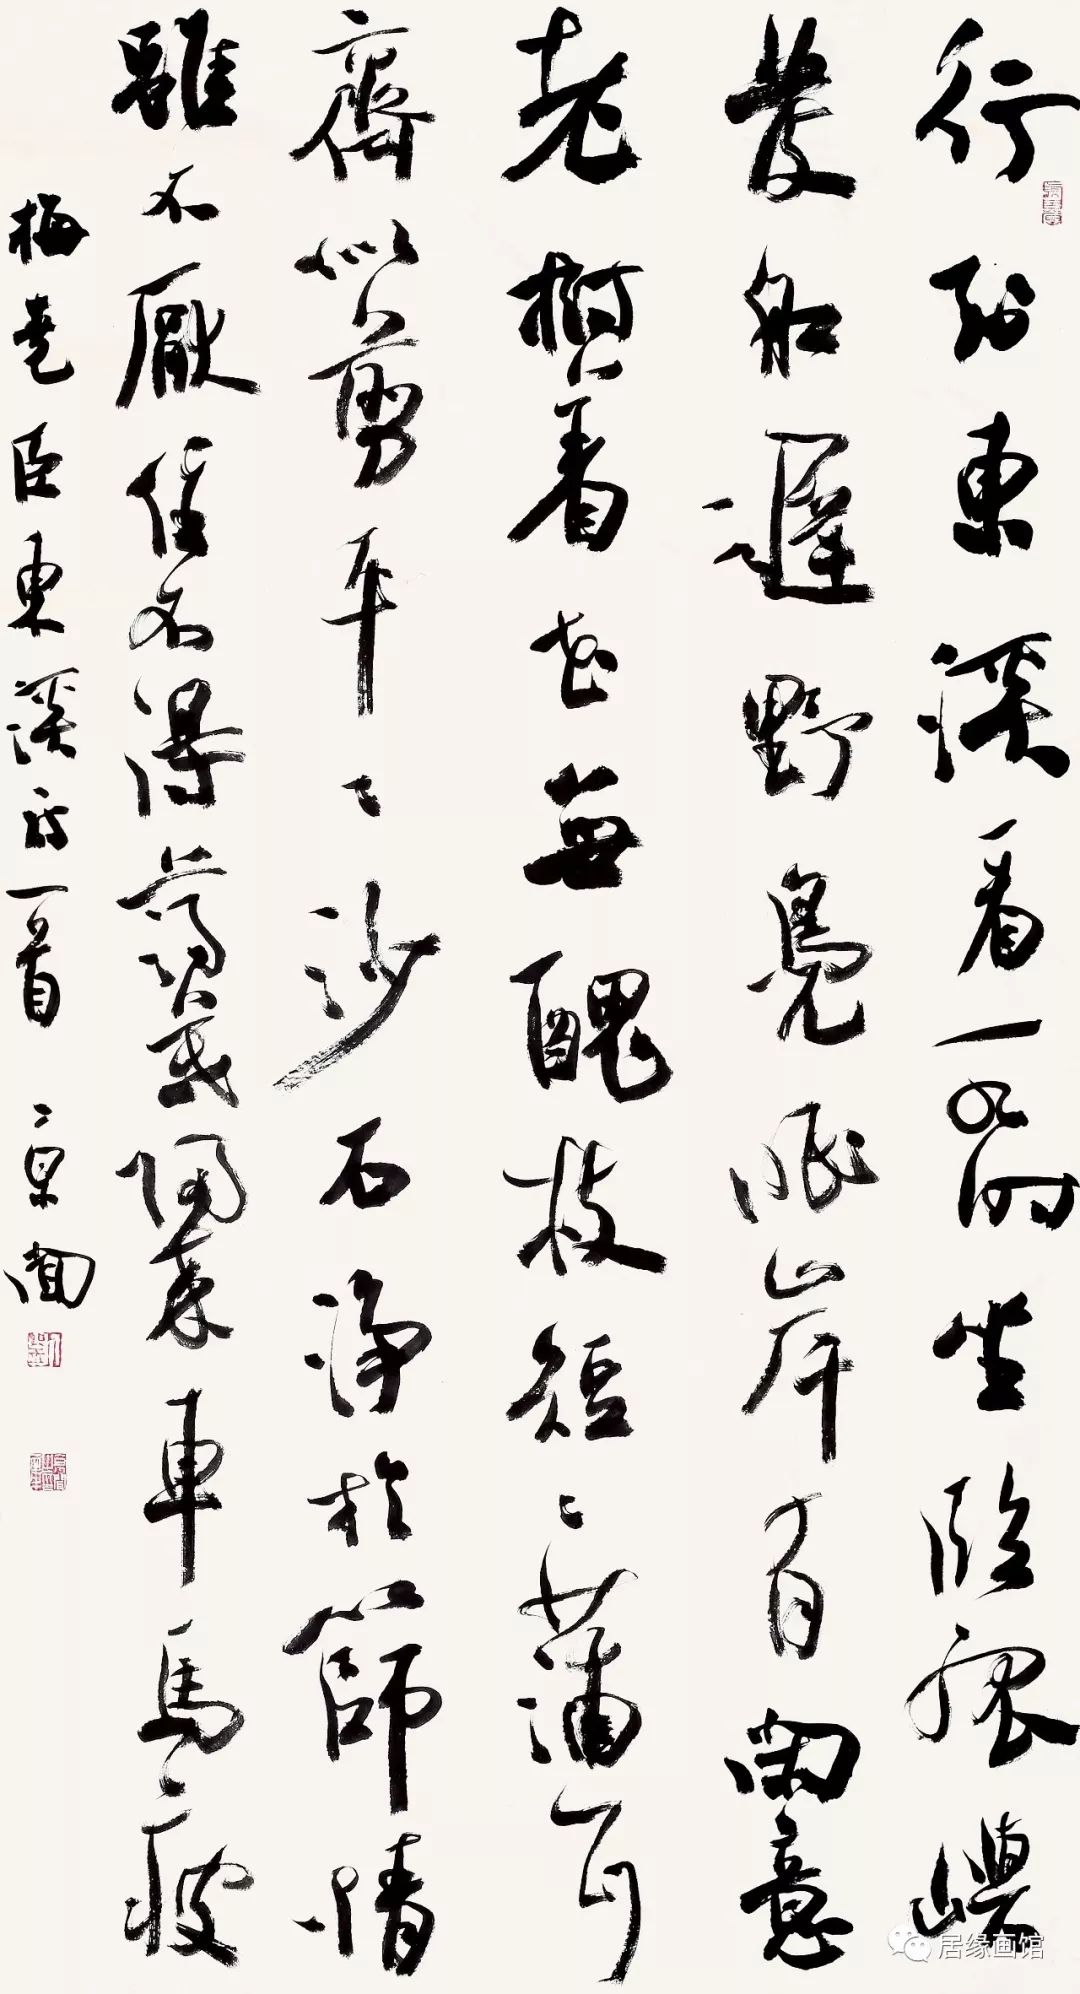 行到東溪看水時坐臨孤嶼
發船遲野鳧眠岸有閑意
老樹着花無醜枝短〻蒲茸
齊似剪平〻沙石淨於篩情
雖不厭住不得薄暮歸來車馬疲
梅堯臣東溪詩一首 京聞
居缘画馆